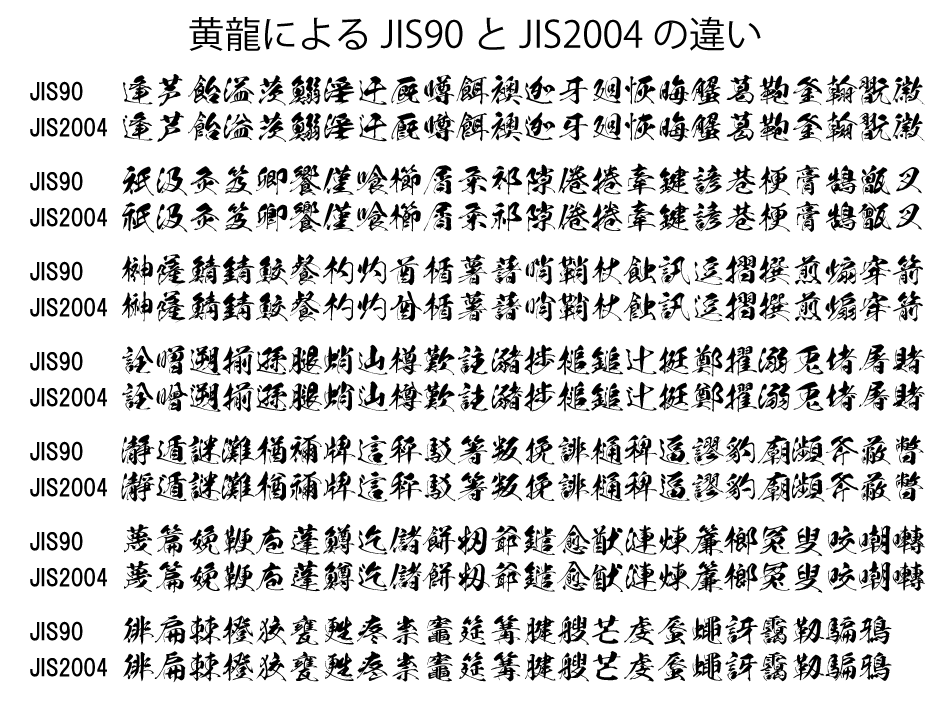 黄龍による JIS90 と JIS2004 の違い
JIS90 逢芦飴溢茨鰯淫迂厩噂餌襖迦牙廻恢晦蟹葛鞄釜翰翫徽
JIS2004 逢芦飴溢茨鰯淫迂厩噂餌襖迦牙廻恢晦蟹葛鞄釜翰翫徽
JIS90 祇汲灸笈卿饗僅喰櫛屑粂祁隙倦捲牽鍵諺巷梗膏鵠甑叉
JIS2004 祇汲灸笈卿饗僅喰櫛屑粂祁隙倦捲牽鍵諺巷梗膏鵠甑叉
JIS90 榊薩鯖錆鮫餐杓灼酋楯薯藷哨鞘杖蝕訊逗摺撰煎煽穿箭
JIS2004 榊薩鯖錆鮫餐杓灼酋楯薯藷哨鞘杖蝕訊逗摺撰煎煽穿箭
JIS90 詮噌遡揃遜腿蛸辿樽歎註瀦捗槌鎚辻挺鄭擢溺兎堵屠賭
JIS2004 詮噌遡揃遜腿蛸辿樽歎註瀦捗槌鎚辻挺鄭擢溺兎堵屠賭
JIS90 瀞遁謎灘楢禰牌這秤駁箸叛挽誹樋稗逼謬豹廟瀕斧蔽瞥
JIS2004 瀞遁謎灘楢禰牌這秤駁箸叛挽誹樋稗逼謬豹廟瀕斧蔽瞥
JIS90 蔑篇娩鞭庖蓬鱒迄儲餅籾爺鑓愈猷漣煉簾榔冤叟咬嘲囀
JIS2004 蔑篇娩鞭庖蓬鱒迄儲餅籾爺鑓愈猷漣煉簾榔冤叟咬嘲囀
JIS90 徘扁棘橙狡甕甦疼祟竈筵篝腱艘芒虔蜃蠅訝靄靱騙鴉
JIS2004 徘扁棘橙狡甕甦疼祟竈筵篝腱艘芒虔蜃蠅訝靄靱騙鴉